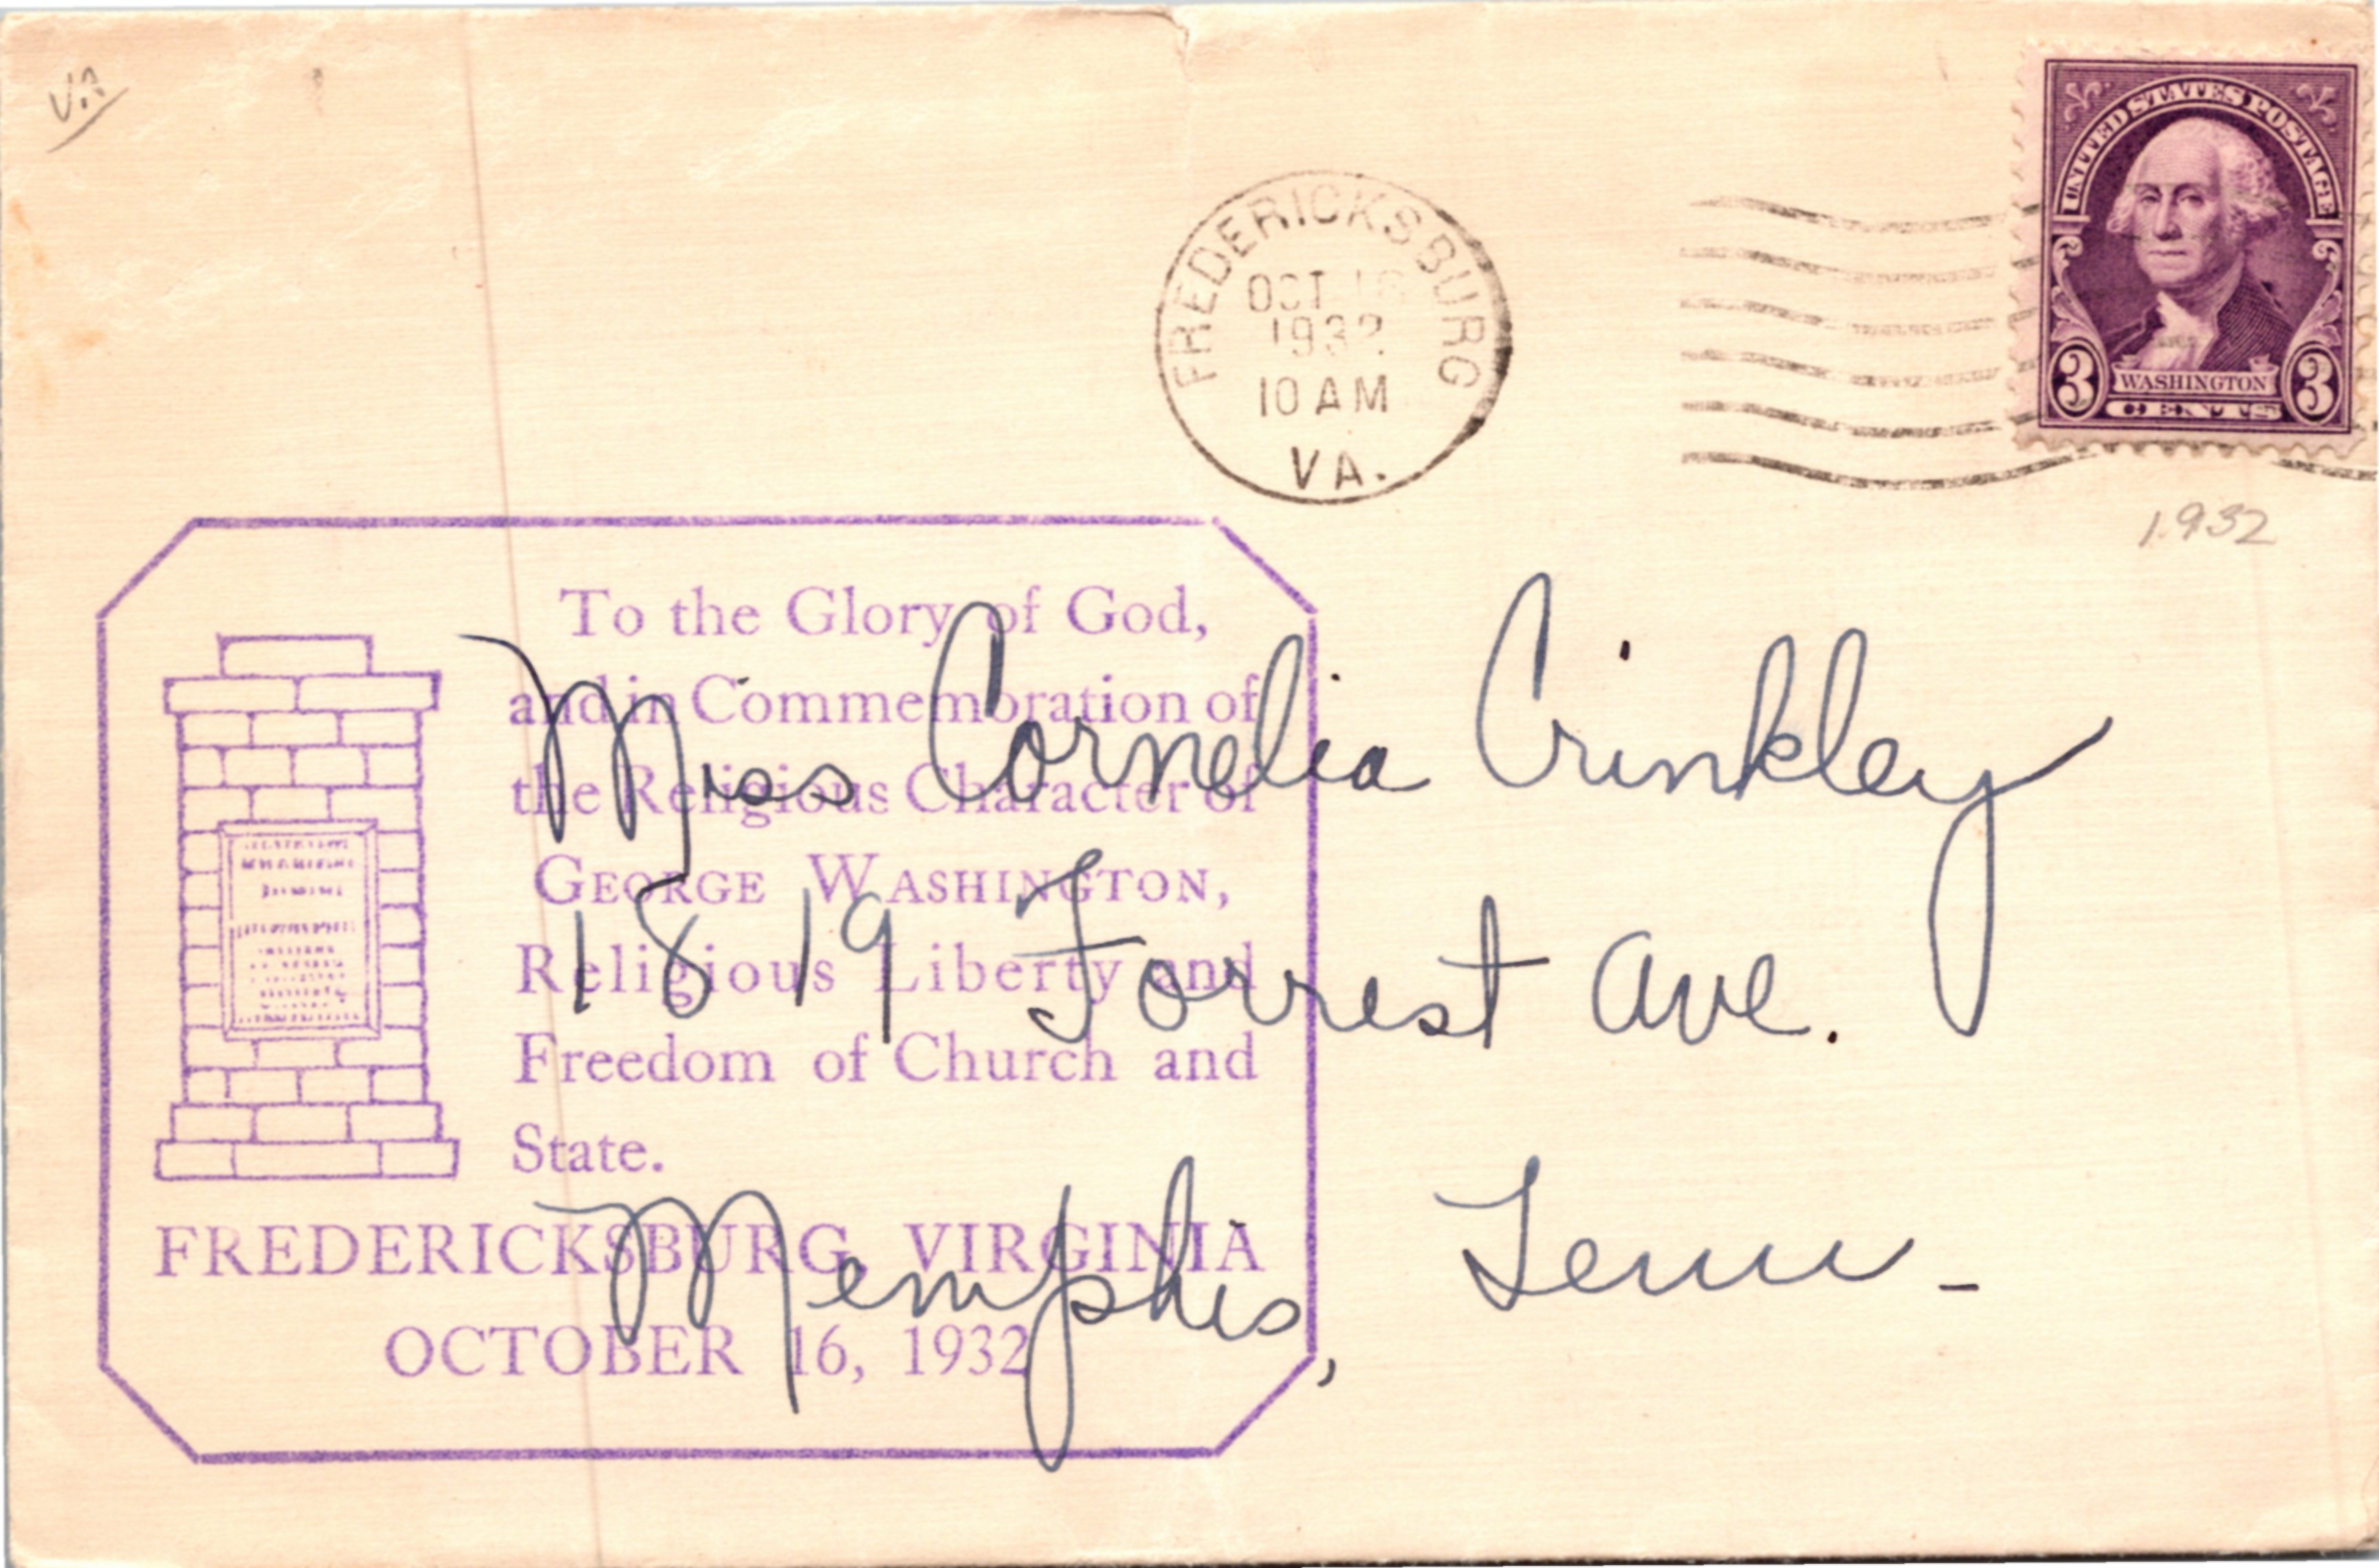 VA
FREDERICKSBURG
OCT 16
1932
10 AM
VA.
UNITED STATES POSTAGE
3 WASHINGTON 3
CENTS
1932
To the Glory of God,
and in Commemoration of
the Religious Character of
GEORGE WASHINGTON,
Religious Liberty and
Freedom of Church and
State.
FREDERICKSBURG, VIRGINIA
OCTOBER 16, 1932
Miss Cornelia Crinkley
1819 Forrest Ave.
Memphis, Tenn-